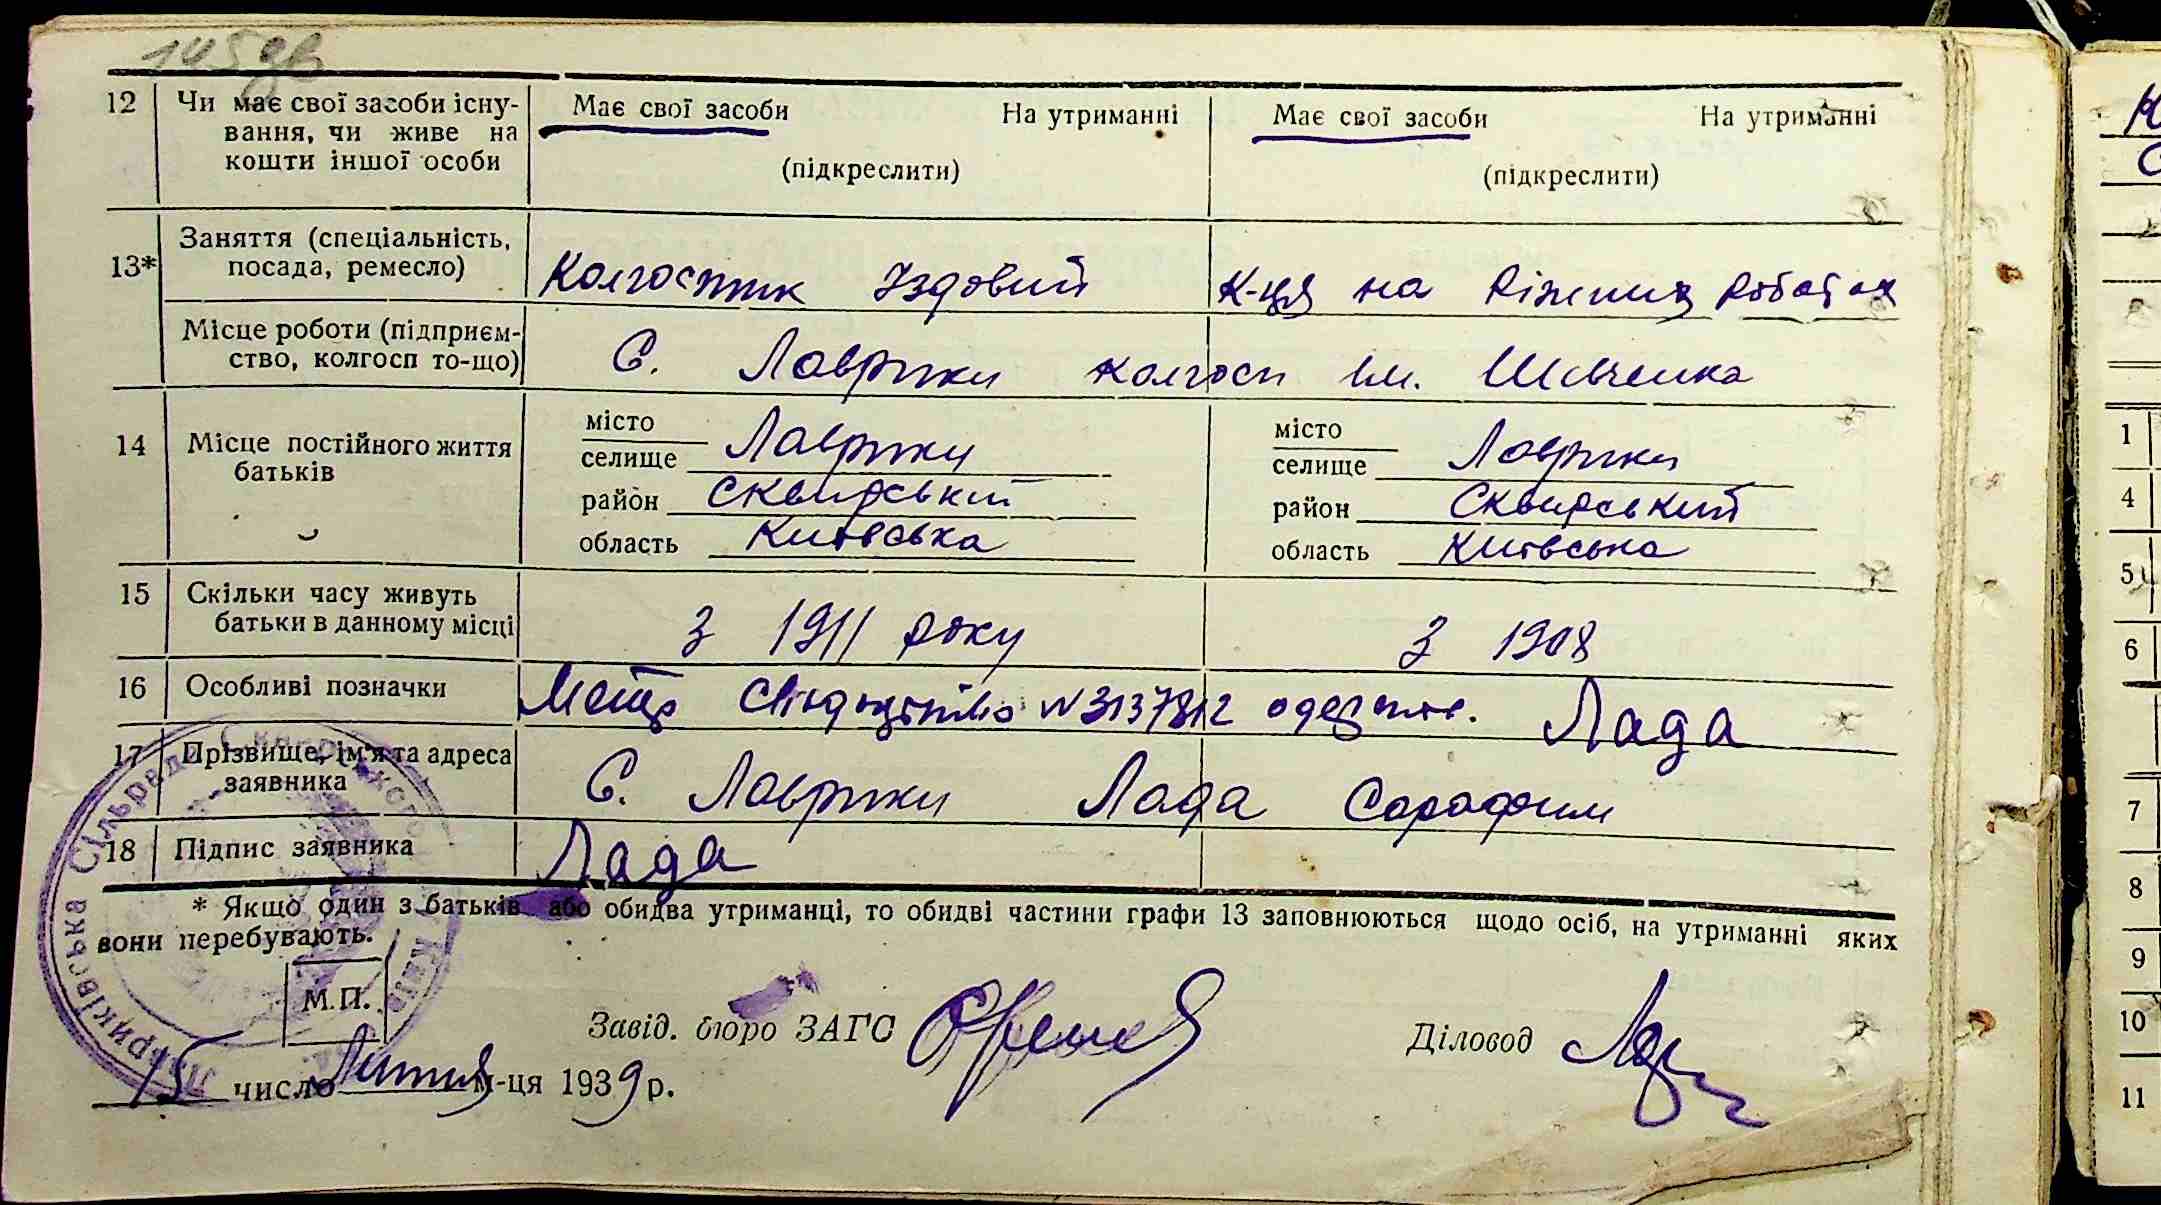 145зв
12 Чи має свої засоби існу- Має свої засоби На утриманні Має свої засоби На утриманні
вання, чи живе на
кошти іншої особи (підкреслити) (підкреслити)
Заняття (спеціальність,
13* посада, ремесло) Колгоспник Їздовий К-ця на ріжних роботах
Місце роботи (підприєм-
ство, колгосп то-що) С. Лавріки колгосп Ім. Шевченка
14 Місце постійного життя місто Лавріки місто Лавріки
батьків селище селище
район Сквирський район Сквирський
область Київська область Київська
15 Скільки часу живуть
батьки в данному місці З 1911 року З 1908
16 Особливі позначки свідоцтво №3137812 Лада
17 Прізвище, ім'я та адреса
заявника С. Лавріки Лада Сарафим
18 Підпис заявника Лада
* Якщо один з батьків або обидва утриманці, то обидві частини графи 13 заповнюються щодо осіб, на утриманні яких
вони перебувають.
М.П.
Завід. бюро ЗАГС Діловод
15 число Липня м-ця 1939 р.
Сільрада
1
4
5
6
7
8
9
10
11